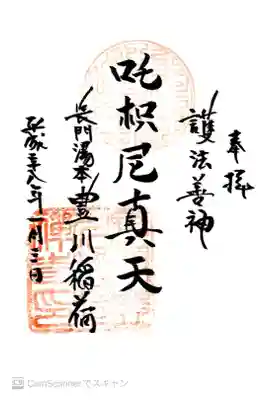 奉拝
護法善神
吒枳尼真天
長門湯本豊川稲荷
平成二十八年一月三日
CamScannerでスキャン